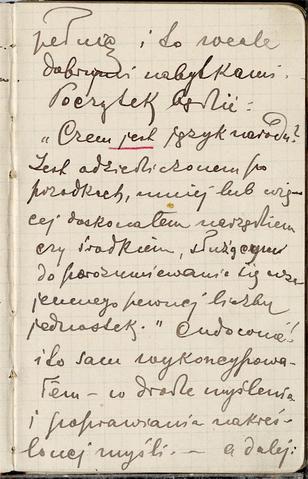 pełnią i to wcale
dobrymi nabytkami.
Początek będzie:
„Czem jest język narodu?
Jest odziedziczonem po
przodkach, mniej lub więc
cej doskonałem narzędziem
czy środkiem, służącym
do porozumiewania się wza
jemnego pewnej liczby
jednostek." Cudowne!
i to sam wykoncypowa-
łem – w drodze myślenia
i poprawiania nakreś-
lonej myśli. — a dalej: